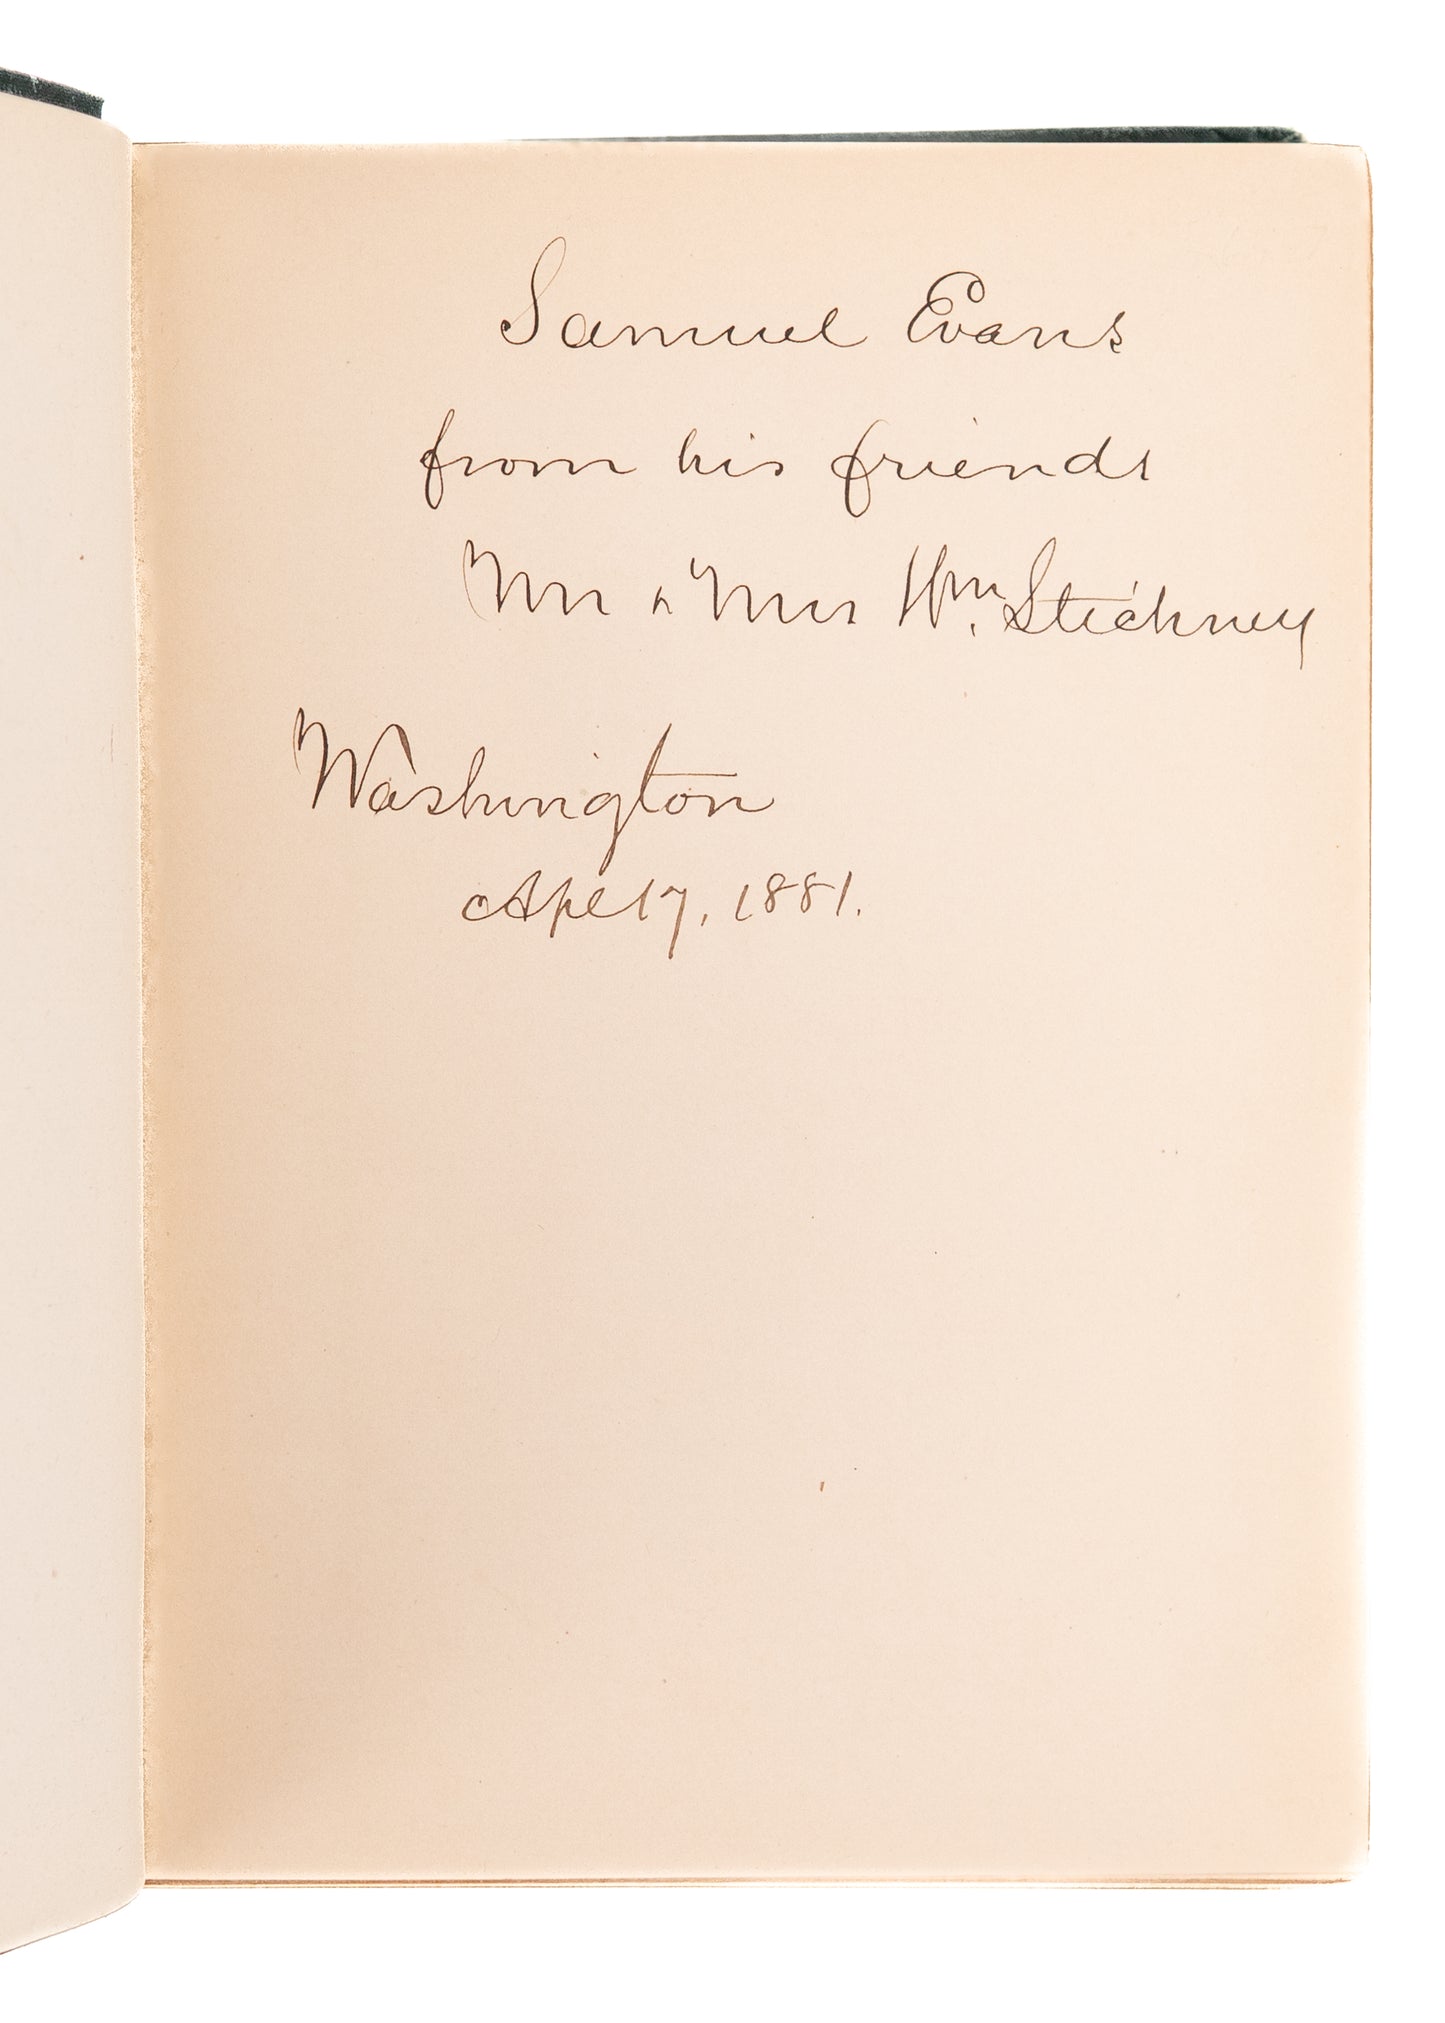 Samuel Evans
from his friends
Mr & Mrs Wm. Stickney
Washington
Apl 17, 1881.